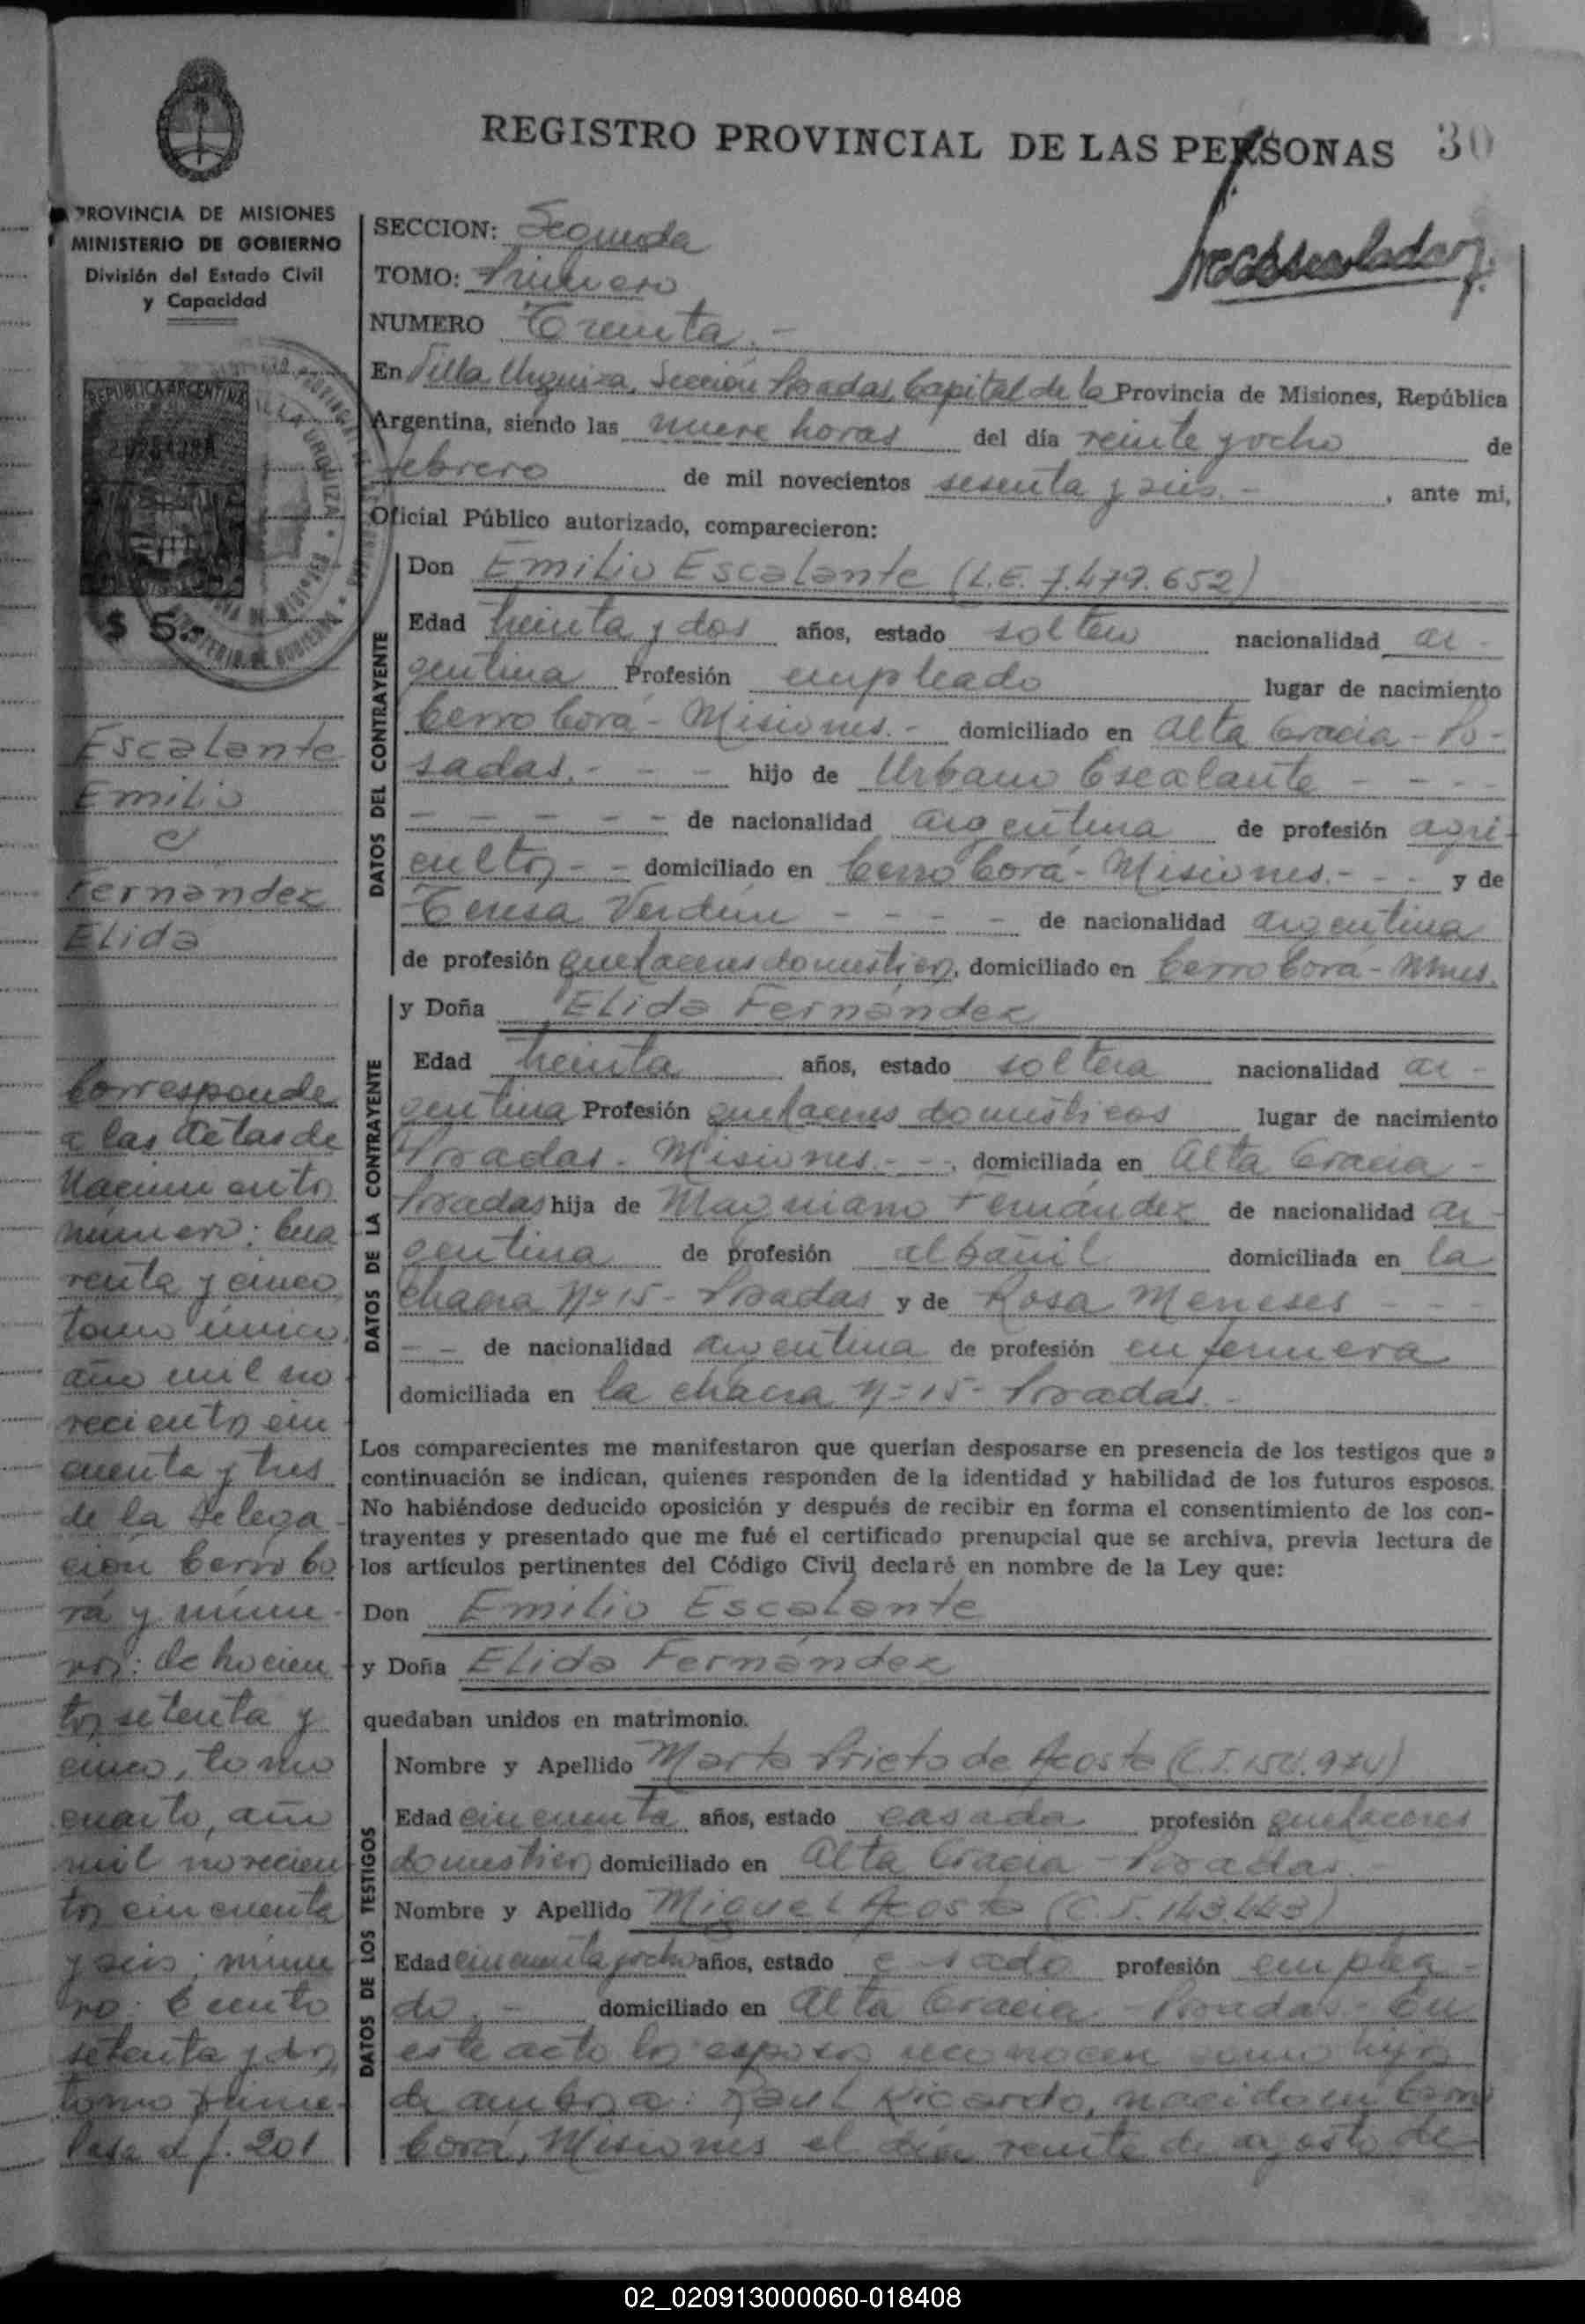 REGISTRO PROVINCIAL DE LAS PERSONAS 30
PROVINCIA DE MISIONES
MINISTERIO DE GOBIERNO
División del Estado Civil
y Capacidad
REPUBLICA ARGENTINA
$ 5.-
Escalante
Emilio
c/
Fernandez
Elida
Corresponde
a las Actas de
Nacimientos
número: Cua
renta y cinco,
tomo único,
año mil no
vecientos cin
cuenta y tres
de la Delega
ción Cerro Co
rá y núme-
ros: dohocien
tos setenta y
cinco, tomo
cuarto, año
mil novecien
tos cincuenta
y seis; núme
ro: Ciento
setenta y dos,
tomo prime-
Pasa al f. 201
SECCION: Segunda
TOMO: Primero
NUMERO Treinta.-
En Villa Urquiza, Sección Posadas, Capital de la Provincia de Misiones, República
Argentina, siendo las nueve horas del día veinte y ocho de
febrero de mil novecientos sesenta y seis.-, ante mi,
Oficial Público autorizado, comparecieron:
DATOS DEL CONTRAYENTE
Don Emilio Escalante (L.E. 7.479.652)
Edad treinta y dos años, estado soltero nacionalidad ar-
gentina Profesión empleado lugar de nacimiento
Cerro Corá - Misiones.- domiciliado en Alta Gracia - Po-
sadas.- - - hijo de Urbano Escalante - - - -
- - - - - de nacionalidad argentina de profesión agri-
cultor - - domiciliado en Cerro Corá - Misiones.- - - y de
Teresa Verdún - - - - de nacionalidad argentina
de profesión quehaceres domésticos, domiciliado en Cerro Corá - Mnes.
DATOS DE LA CONTRAYENTE
y Doña Elida Fernández
Edad treinta años, estado soltera nacionalidad ar-
gentina Profesión quehaceres domésticos lugar de nacimiento
Posadas - Misiones.- -, domiciliada en Alta Gracia -
Posadas hija de Fernández de nacionalidad ar-
gentina de profesión albañil domiciliada en la
chacra Nº 15 - Posadas y de Rosa Meneses - - -
- - de nacionalidad argentina de profesión enfermera
domiciliada en la chacra Nº 15 - Posadas.-
Los comparecientes me manifestaron que querían desposarse en presencia de los testigos que a
continuación se indican, quienes responden de la identidad y habilidad de los futuros esposos.
No habiéndose deducido oposición y después de recibir en forma el consentimiento de los con-
trayentes y presentado que me fué el certificado prenupcial que se archiva, previa lectura de
los artículos pertinentes del Código Civil declaré en nombre de la Ley que:
Don Emilio Escalante
y Doña Elida Fernández
quedaban unidos en matrimonio.
DATOS DE LOS TESTIGOS
Nombre y Apellido Marta Prieto de Acosta (C.I. 154.974)
Edad cincuenta años, estado casada profesión quehaceres
domésticos, domiciliado en Alta Gracia - Posadas.
Nombre y Apellido Miguel Acosta (C.I. 143.443)
Edad cincuenta y ocho años, estado casado profesión emplea-
do.- domiciliado en Alta Gracia - Posadas.- En
este acto los esposos reconocen como hijos
de ambos a: Raul Ricardo, nacido en Cerro
Corá, Misiones el día veinte de agosto de
02_020913000060-018408